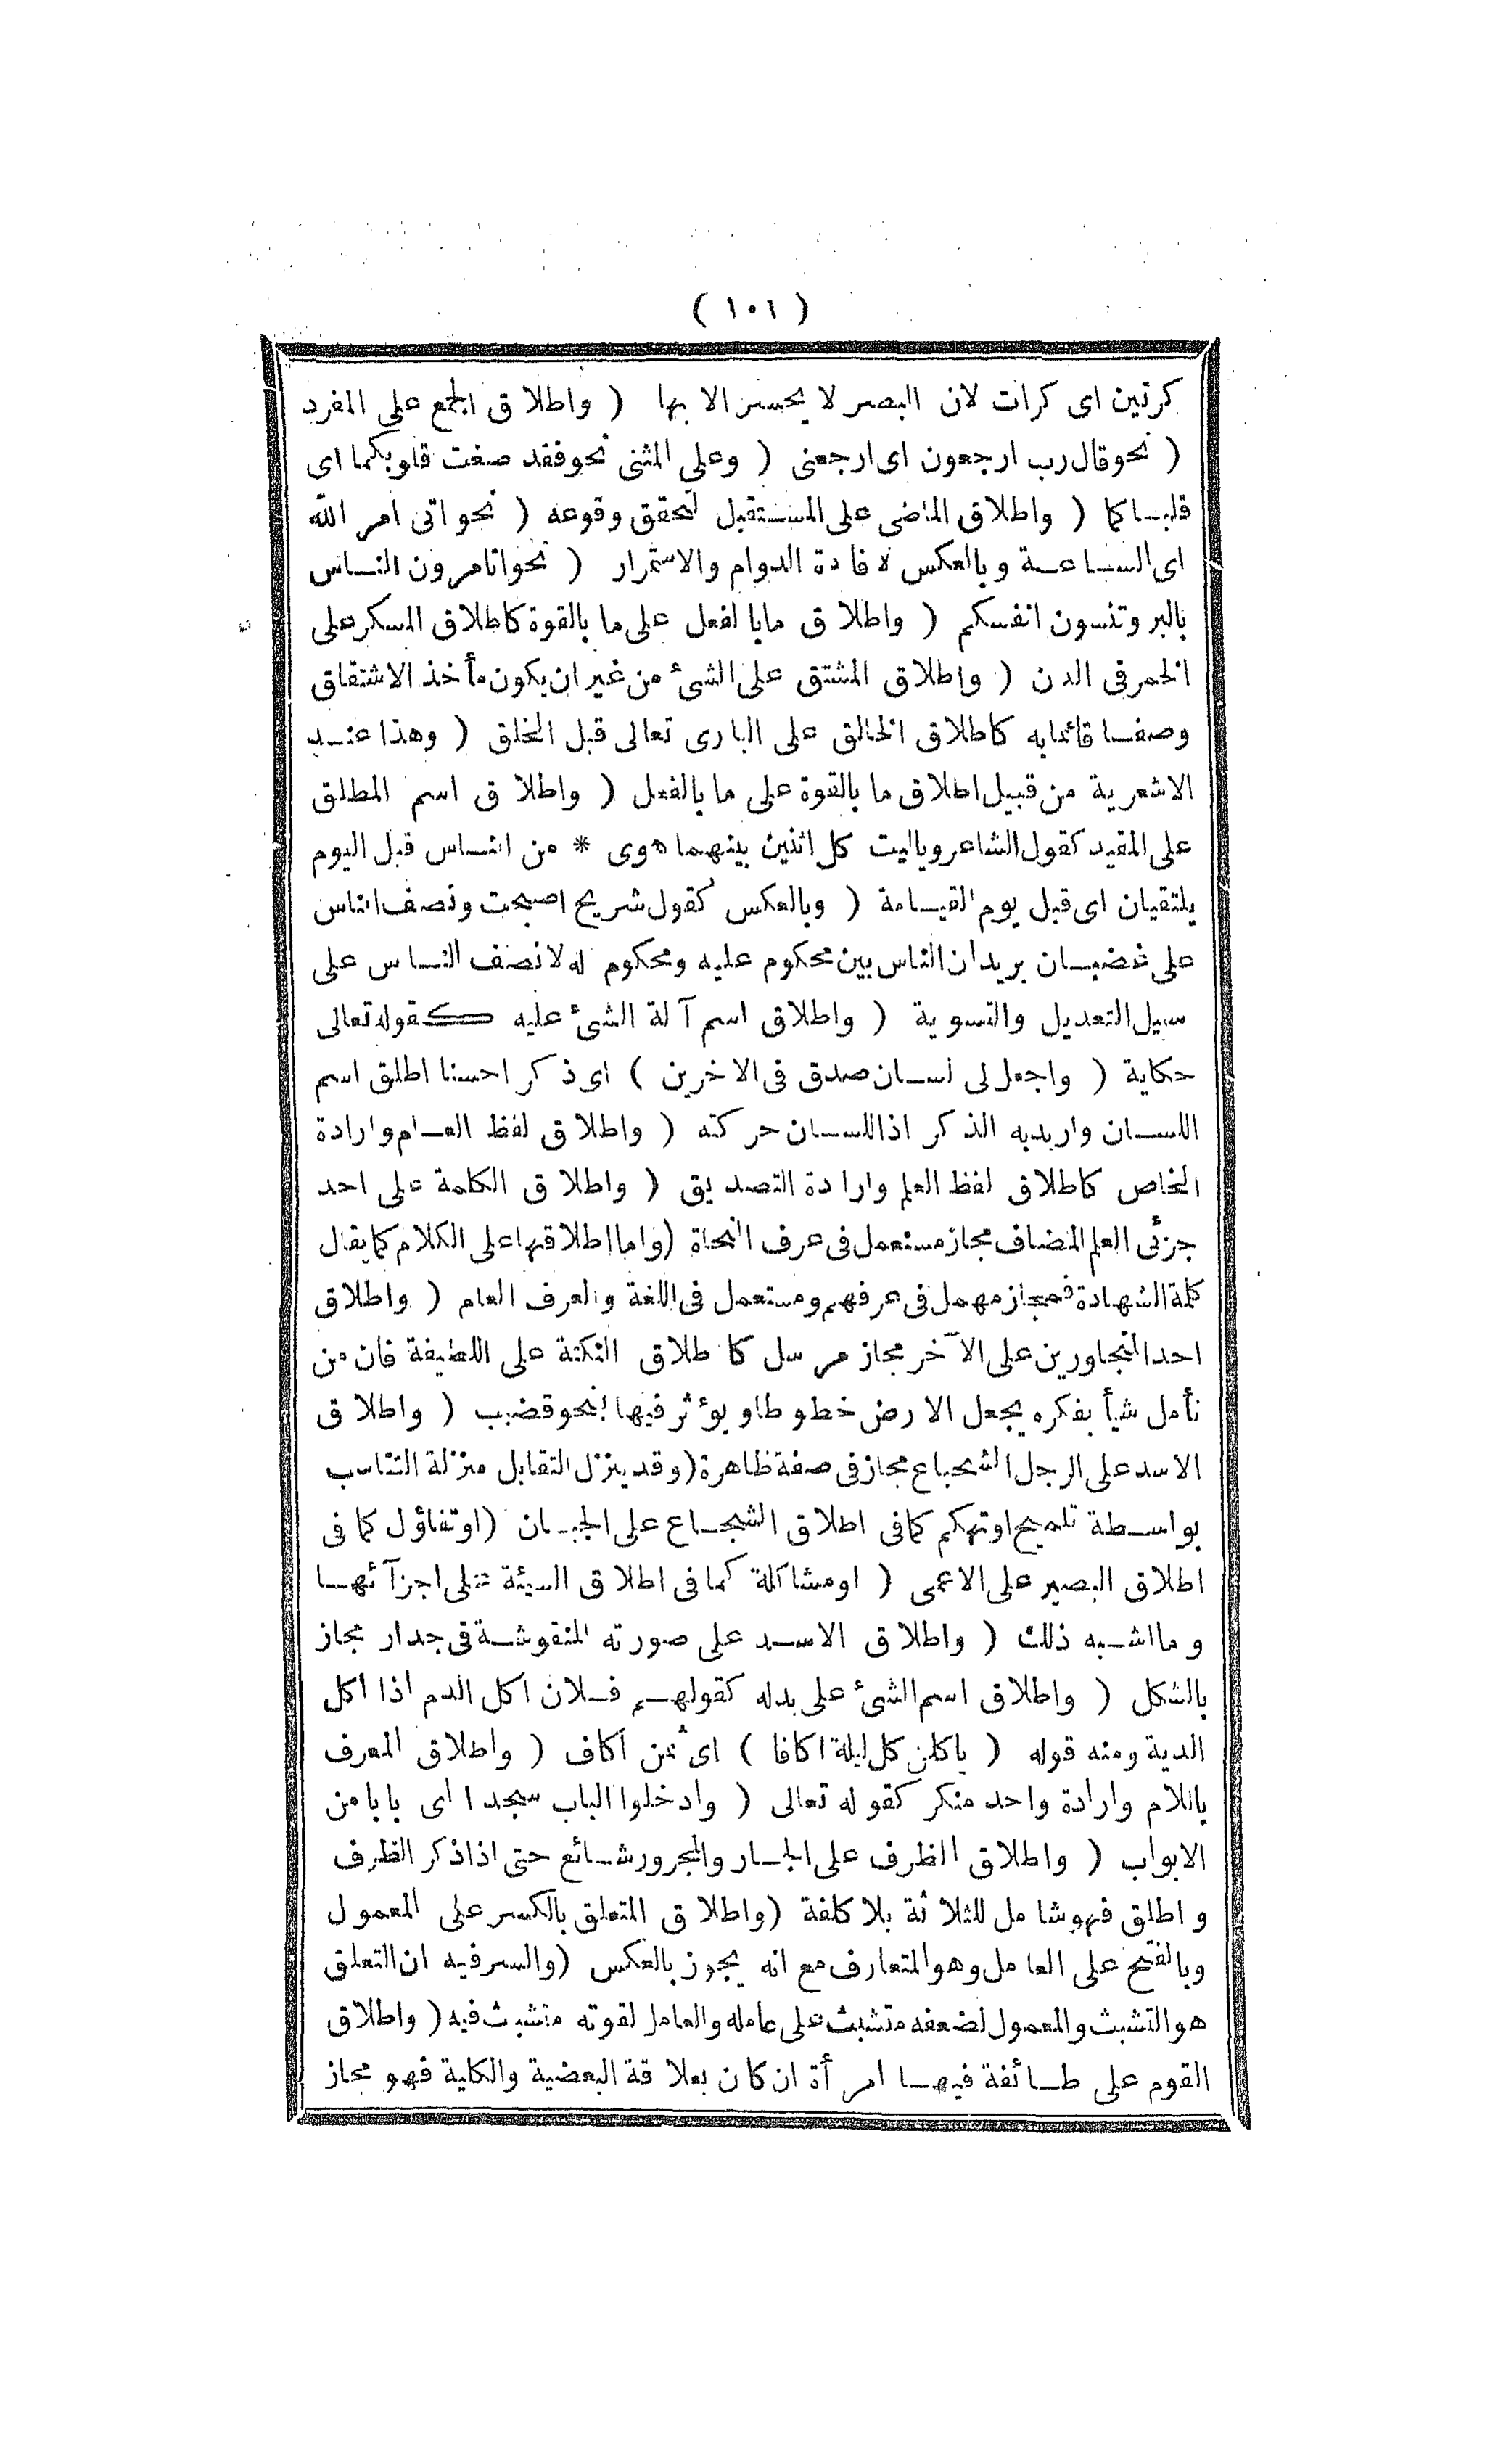 ( ١٠١ )
كرتين اى كرات لان البصر لا يحسر الا بها ( واطلاق الجمع على المفرد
( نحو قال رب ارجعون اى ارجعنى ( وعلى المثنى نحو فقد صغت قلوبكما اى
قلبـاكما ( واطلاق الماضى على المستقبل لتحقق وقوعه ( نحو اتى امر الله
اى السـاعـة وبالعكس لافادة الدوام والاستمرار ( نحو اتامرون النـاس
بالبر وتنسون انفسكم ( واطلاق مابالفعل على ما بالقوة كاطلاق المسكر على
الخمر فى الدن ( واطلاق المشتق على الشئ من غير ان يكون مأخذ الاشتقاق
وصفـا قائمابه كاطلاق الخالق على البارى تعالى قبل الخلق ( وهذا عنـد
الاشعرية من قبيل اطلاق ما بالقوة على ما بالفعل ( واطلاق اسم المطلق
على المقيد كقول الشاعر وياليت كل اثنين بينهما هوى * من النـاس قبل اليوم
يلتقيان اى قبل يوم القيـامة ( وبالعكس كقول شريح اصبحت ونصف الناس
على غضبـان يريد ان الناس بين محكوم عليه ومحكوم له لا نصف النـاس على
سبيل التعديل والتسوية ( واطلاق اسم آلة الشئ عليه كقوله تعالى
حكاية ( واجعل لى لسـان صدق فى الاخرين ) اى ذكر احسنا اطلق اسم
اللسـان واريدبه الذكر اذ اللسـان حركته ( واطلاق لفظ العـام وارادة
الخاص كاطلاق لفظ العلم وارادة التصديق ( واطلاق الكلمة على احد
جزئى العلم المضاف مجاز مستعمل فى عرف النحاة ( واما اطلاقها على الكلام كما يقال
كلمة الشهادة فمجاز مهمل فى عرفهم ومستعمل فى اللغة والعرف العام ( واطلاق
احد المتجاورين على الآخر مجاز مرسل كاطلاق النكتة على اللطيفة فان من
تأمل شيأ بفكره يجعل الارض خطوطا ويؤثر فيها بنحو قضيب ( واطلاق
الاسد على الرجل الشجاع مجاز فى صفة ظاهرة ( وقد ينزل التقابل منزلة التناسب
بواسـطة تلميح اوتهكم كمافى اطلاق الشجـاع على الجبـان ( اوتفاؤل كما فى
اطلاق البصير على الاعمى ( اومشاكلة كما فى اطلاق السيئة على اجزآئهـا
وما اشـبه ذلك ( واطلاق الاسـد على صورته المنقوشـة فى جدار مجاز
بالشكل ( واطلاق اسم الشئ على بدله كقولهـم فـلان اكل الدم اذا اكل
الدية ومنه قوله ( ياكلن كل ليلة اكافا ) اى ثمن اكاف ( واطلاق المعرف
باللام وارادة واحد منكر كقوله تعالى ( وادخلوا الباب سجدا اى بابا من
الابواب ( واطلاق الظرف على الجـار والمجرور شـائع حتى اذا ذكر الظرف
واطلق فهو شامل للثلاثة بلا كلفة ( واطلاق المتعلق بالكسر على المعمول
وبالفتح على العامل وهو المتعارف مع انه يجوز بالعكس ( والسر فيه ان التعلق
هو التشبث والمعمول لضعفه متشبث على عامله والعامل لقوته متشبث فيه ( واطلاق
القوم على طـائفة فيهـا امرأة ان كان بعلاقة البعضية والكلية فهو مجاز